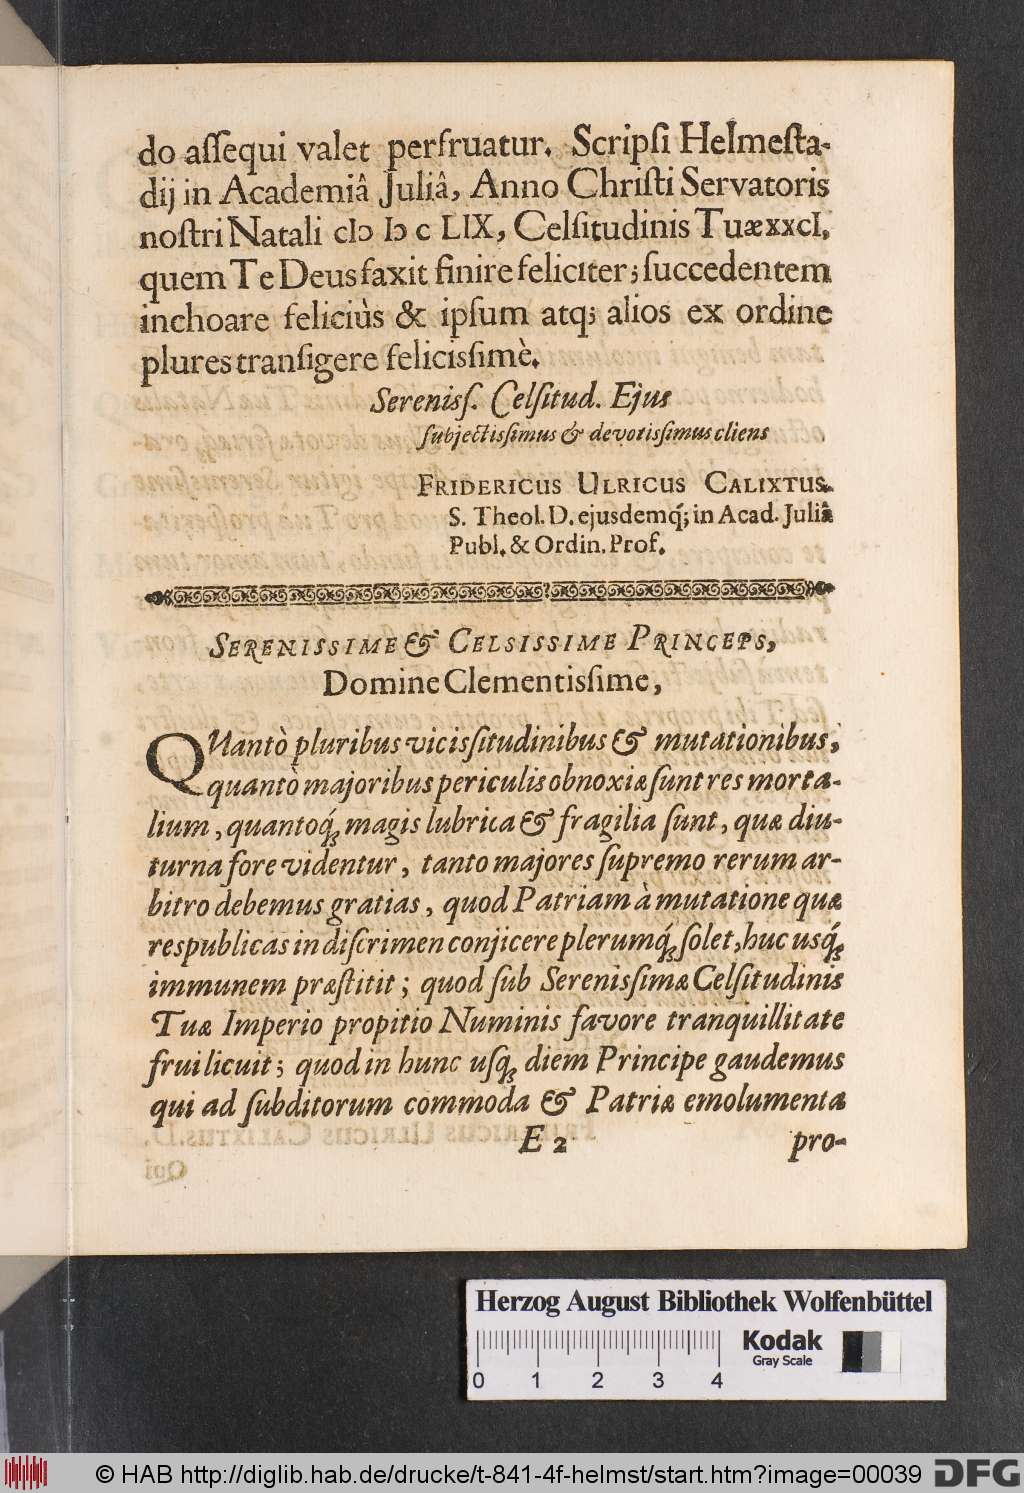 do aſſequi valet perfruatur. Scripſi Helmeſta-
dij in Academiâ Juliâ, Anno Chriſti Servatoris
noſtri Natali cIↄ Iↄ c LIX, Celſitudinis Tuæ xxcI.
quem Te Deus faxit finire feliciter; ſuccedentem
inchoare feliciùs & ipſum atq; alios ex ordine
plures tranſigere feliciſſimè.
Sereniſſ. Celſitud. Ejus
ſubjectiſſimus & devotiſſimus cliens
FRIDERICUS ULRICUS CALIXTUS.
S. Theol. D. ejusdemq́; in Acad. Juliâ
Publ. & Ordin. Prof.
SERENISSIME & CELSISSIME PRINCEPS,
Domine Clementiſſime,
QUantò pluribus viciſſitudinibus & mutationibus,
quantò majoribus periculis obnoxiæ ſunt res morta-
lium, quantoq́; magis lubrica & fragilia ſunt, quæ diu-
turna fore videntur, tanto majores ſupremo rerum ar-
bitro debemus gratias, quod Patriam à mutatione quæ
respublicas in diſcrimen conjicere plerumq́; ſolet, huc usq́;
immunem præſtitit; quod ſub Sereniſſimæ Celſitudinis
Tuæ Imperio propitio Numinis favore tranquillitate
frui licuit; quod in hunc uſq; diem Principe gaudemus
qui ad ſubditorum commoda & Patriæ emolumenta
E 2
pro-
Herzog August Bibliothek Wolfenbüttel
Kodak
Gray Scale
0 1 2 3 4
© HAB http://diglib.hab.de/drucke/t-841-4f-helmst/start.htm?image=00039
DFG